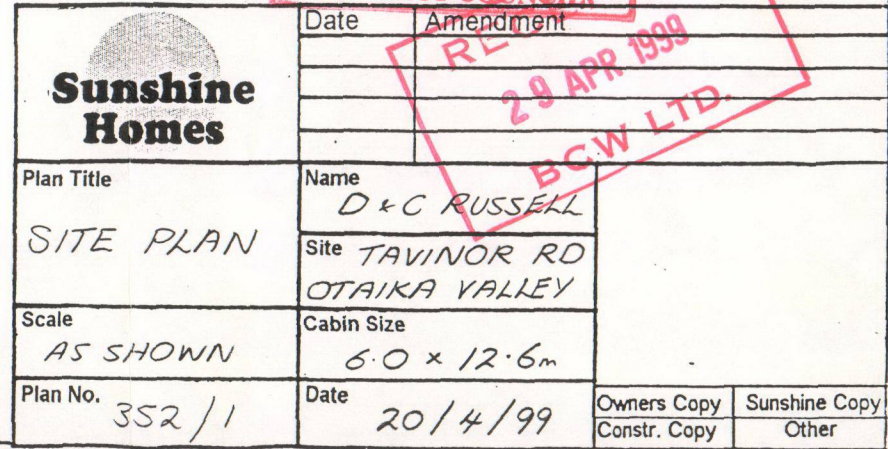 Sunshine
Homes
Date Amendment
29 APR 1999
BCW LTD.
Plan Title
SITE PLAN
Name
D & C RUSSELL
Site TAVINOR RD
OTAIKA VALLEY
Scale
AS SHOWN
Cabin Size
6.0 × 12.6m
Plan No. 352/1
Date 20/4/99
Owners Copy Sunshine Copy
Constr. Copy Other